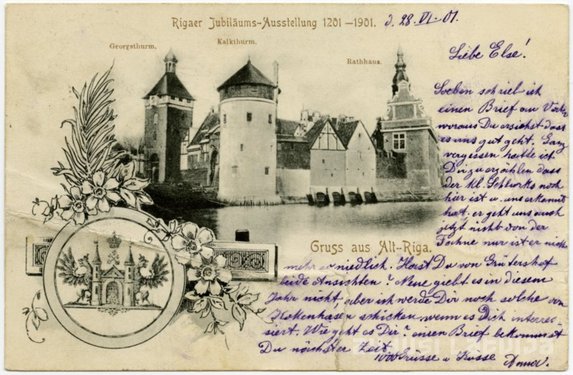 Rigaer Jubiläums-Ausstellung 1201–1901.
d. 28. VI. 01.
Georgsthurm.
Kalkthurm.
Rathhaus.
Liebe Else!
Soeben schrieb ich
einen Brief an
woraus Du ersiehst dass
es uns gut geht. Ganz
vergessen hatte ich
Dir zu erzählen dass
der kl. noch
hier ist u. uns erkannt
hat. er geht uns auch
jetzt nicht von der
nur ist er nicht
Gruss aus Alt-Riga.
mehr so niedlich. Hast Du von
beide Ansichten? Neue giebt es in diesem
Jahr nicht, aber ich werde Dir noch solche von
Kokenhusen schicken, wenn es Dich interes-
siert. Wie geht es Dir? einen Brief bekommst
Du nächster Zeit.
1000 Grüsse u Küsse